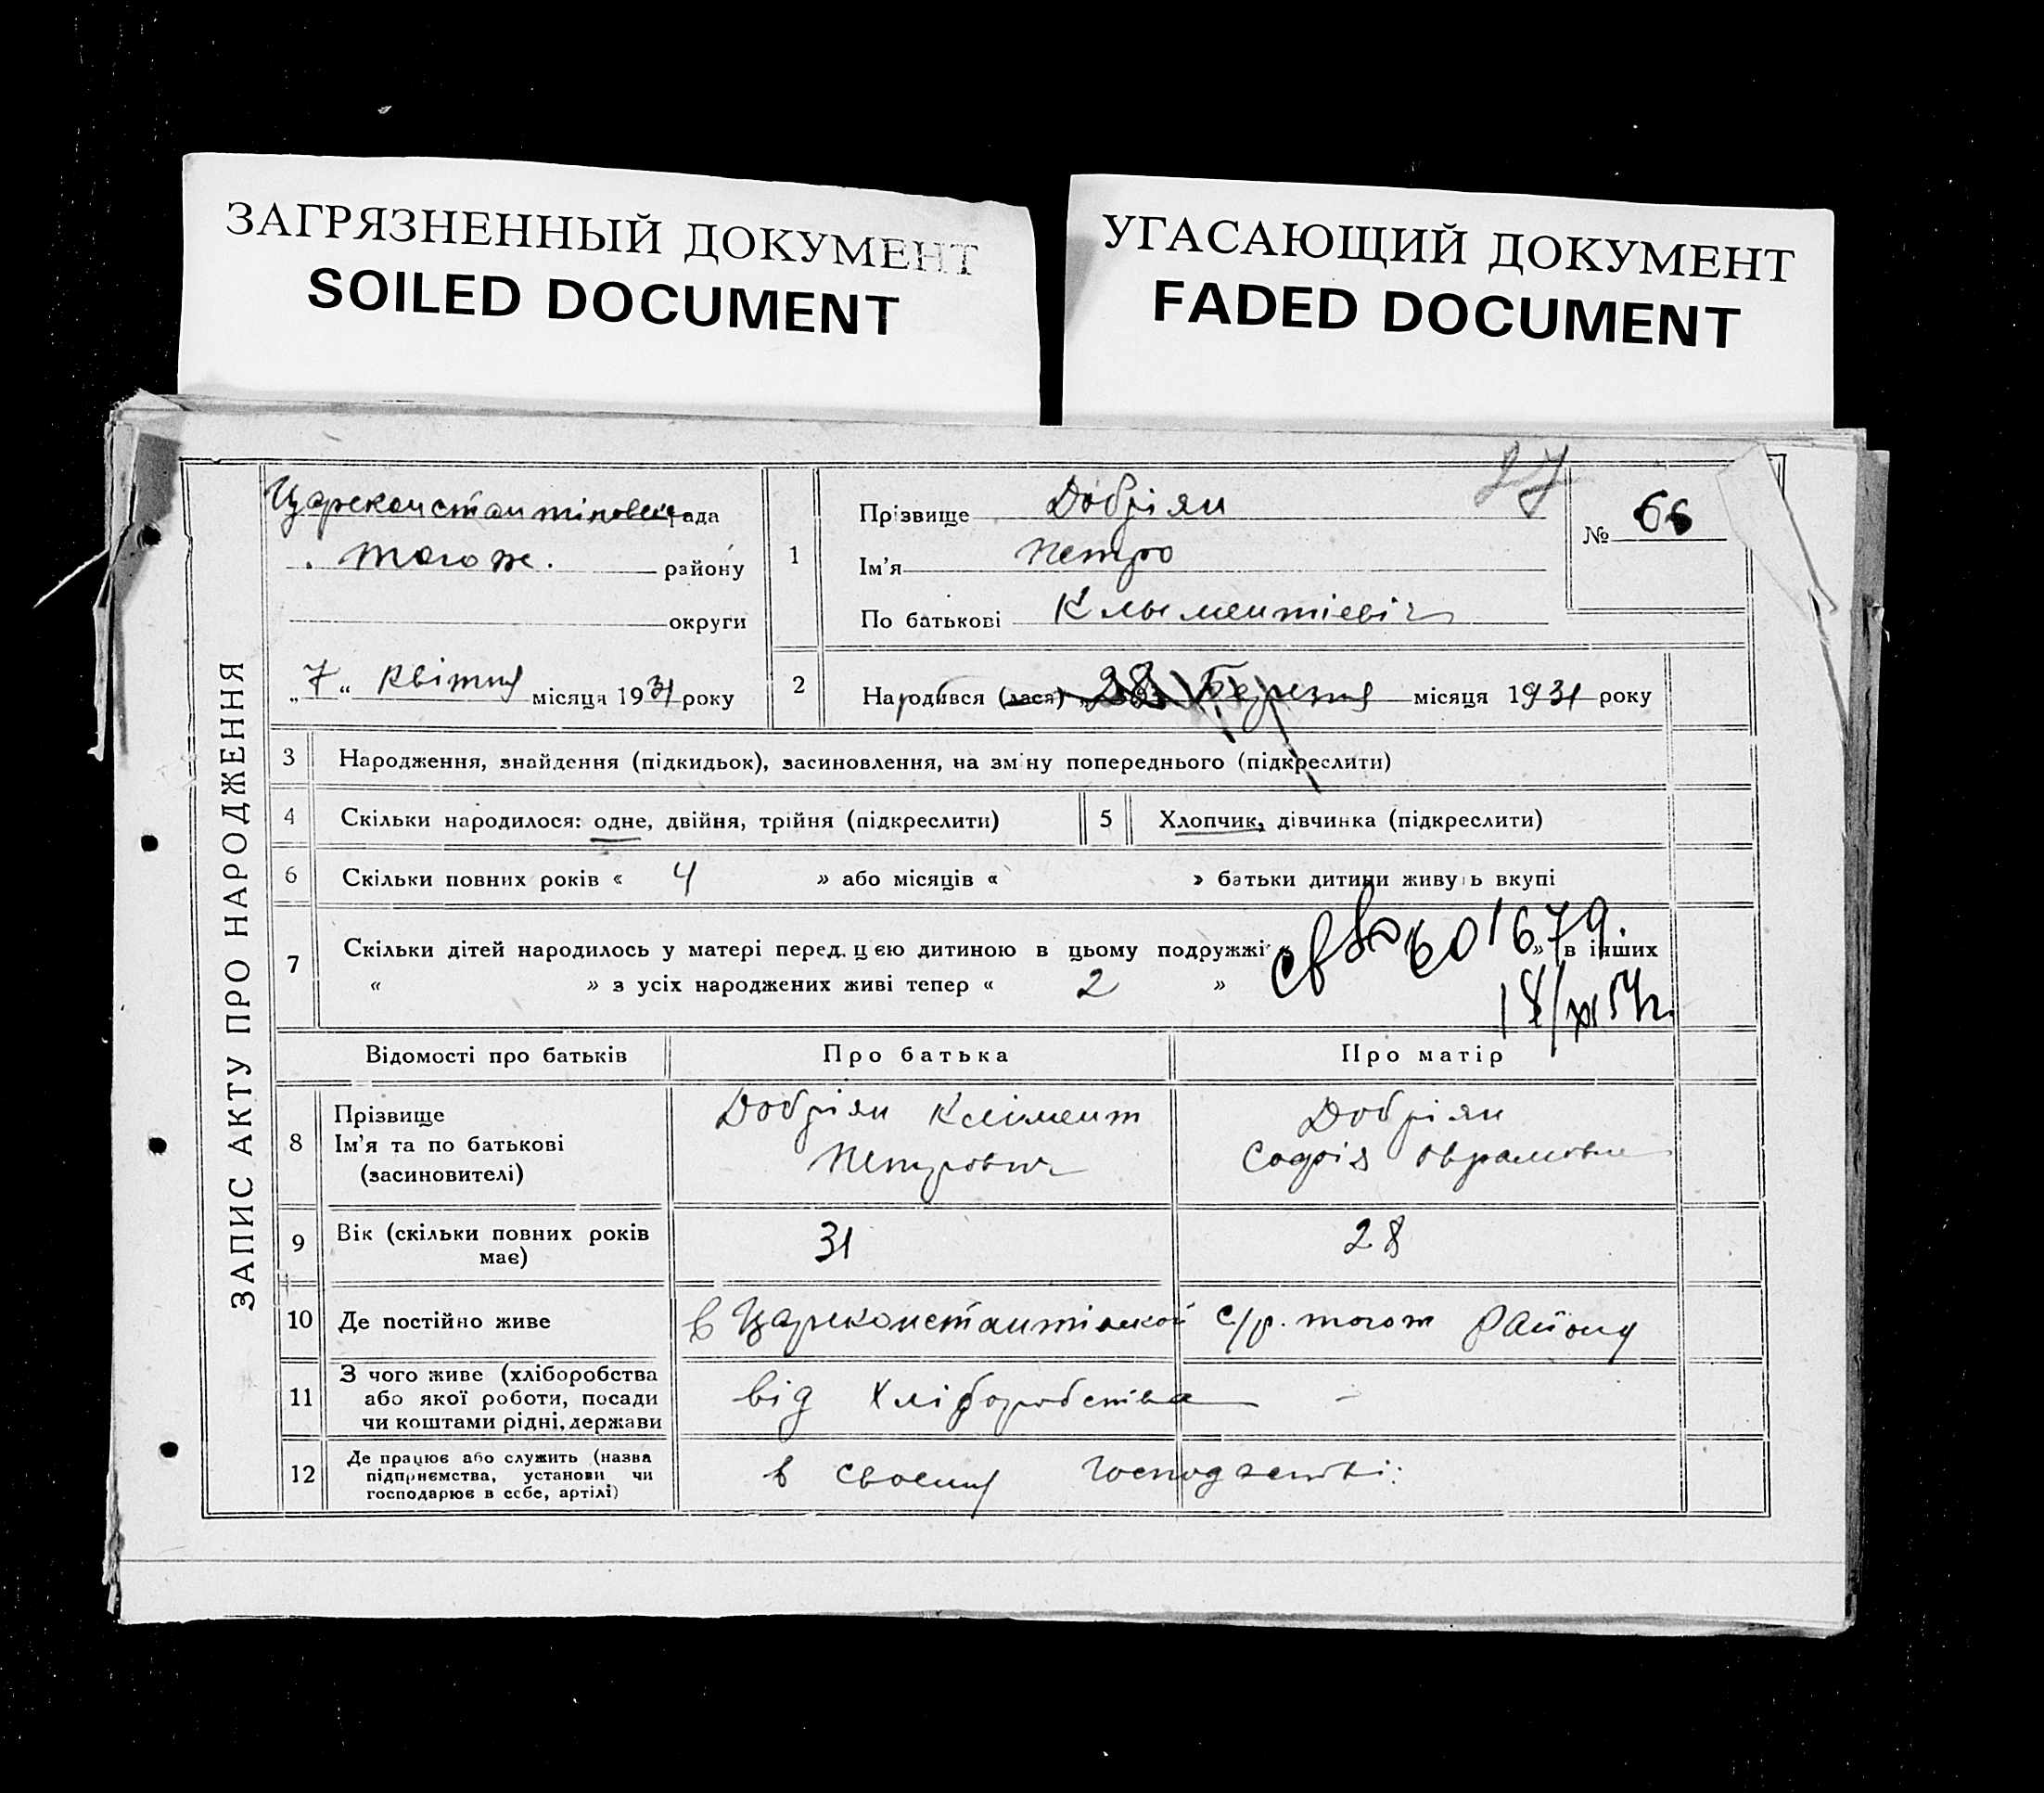 ЗАГРЯЗНЕННЫЙ ДОКУМЕНТ
SOILED DOCUMENT
УГАСАЮЩИЙ ДОКУМЕНТ
FADED DOCUMENT
27
ЗАПИС АКТУ ПРО НАРОДЖЕННЯ
рада
тогож. району
округи
„ 7 “ Квітня місяця 1931 року
1
Прізвище Добріян
Ім'я Петро
По батькові Клыментієвіч
№ 66
2 Народився (лася) 28 Березня місяця 1931 року
3 Народження, знайдення (підкидьок), засиновлення, на зміну попереднього (підкреслити)
4 Скільки народилося: одне, двійня, трійня (підкреслити) 5 Хлопчик, дівчинка (підкреслити)
6 Скільки повних років « 4 » або місяців « » батьки дитини живуть вкупі
7 Скільки дітей народилось у матері перед цією дитиною в цьому подружжі » в інших
« » з усіх народжених живі тепер « 2 »
601679
Відомості про батьків Про батька Про матір
8 Прізвище
Ім'я та по батькові
(засиновителі)
Добріян Клімент
Петрович
Добріян
Софія Оврамовна
9 Вік (скільки повних років
має)
31 28
10 Де постійно живе в с/р. тогож Району
11 З чого живе (хліборобства
або якої роботи, посади
чи коштами рідні, держави
від Хліборобства -
12 Де працює або служить (назва
підприємства, установи чи
господарює в себе, артілі)
в своему